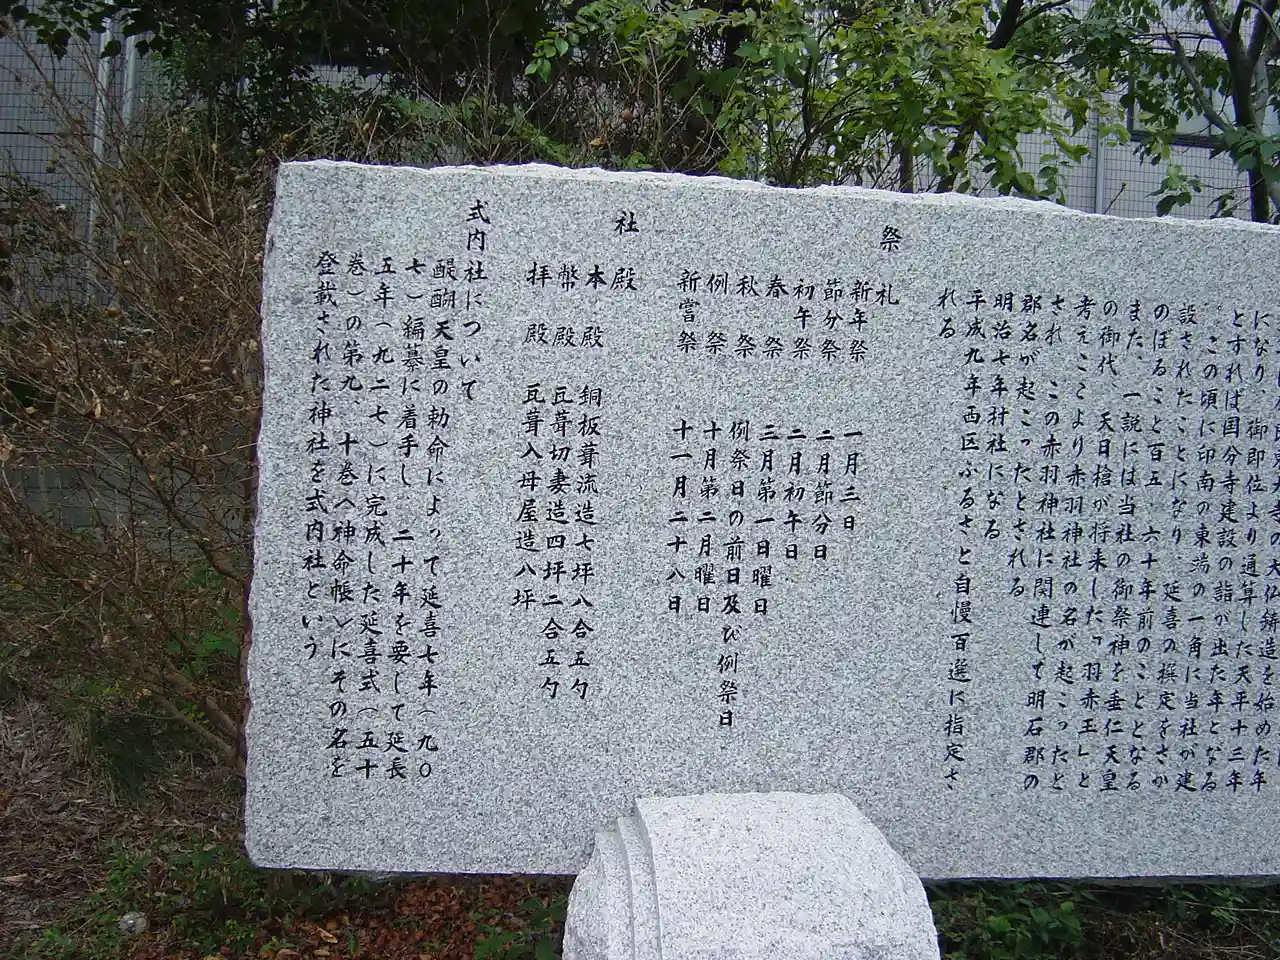 東大寺の大仏鋳造を始めた年
になり、御即位より通算した天平十三年
とすれば国分寺建設の詣が出た年となる
この頃に印南の東端の一角に当社が建
設されたことになり、延喜の撰定をさか
のぼること百五、六十年前のこととなる
また、一説には当社の御祭神を垂仁天皇
の御代、天日槍が将来した「羽赤玉」と
考えここより赤羽神社の名が起こったと
され、この赤羽神社に関連して明石郡の
郡名が起こったとされる
明治七年村社になる
平成九年西区ふるさと自慢百選に指定さ
れる
祭 礼
新年祭 一月三日
節分祭 二月節分日
初午祭 二月初午日
春祭 三月第一日曜日
秋祭 例祭日の前日及び例祭日
例祭 十月第二月曜日
新嘗祭 十一月二十八日
社 殿
本殿 銅板葺流造七坪八合五勺
幣殿 瓦葺切妻造四坪二合五勺
拝殿 瓦葺入母屋造八坪
式内社について
醍醐天皇の勅命によって延喜七年(九〇
七)編墓に着手し、二十年を要して延長
五年(九二七)に完成した延喜式(五十
巻)の第九、十巻へ神命帳>にその名を
登載された神社を式内社という